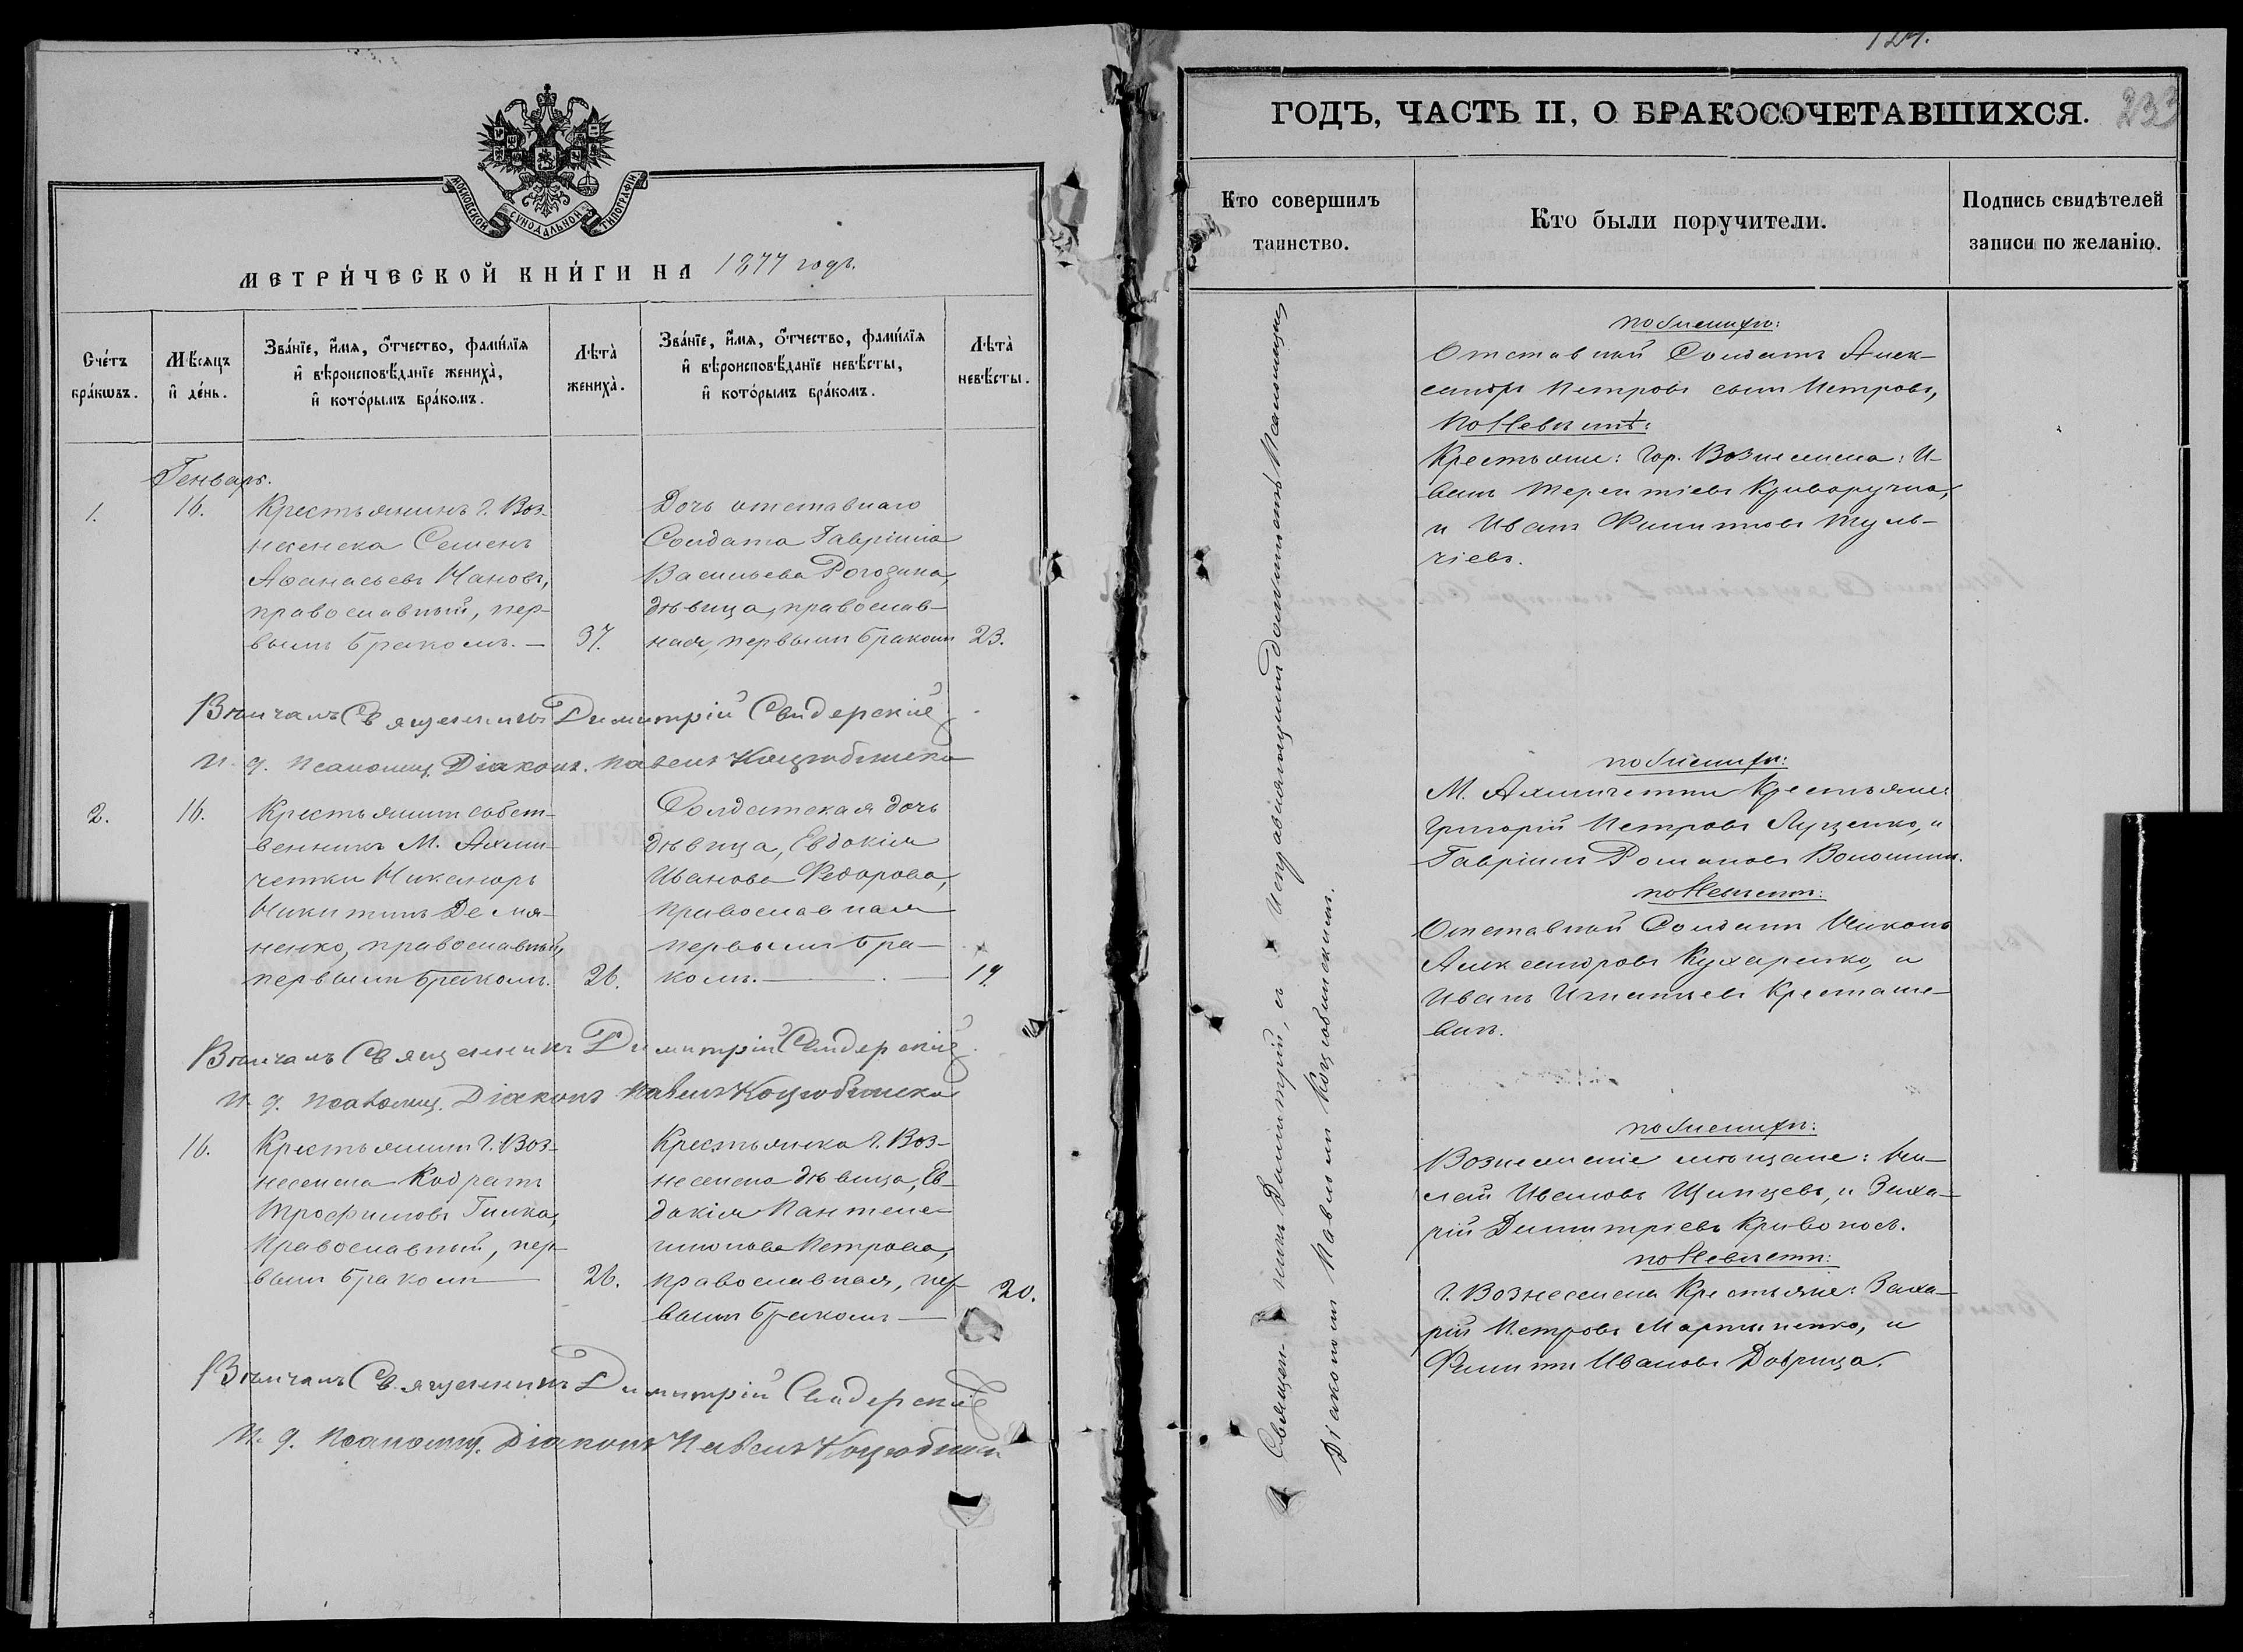 МОСКОВСКОЙ СѴНОДАЛЬНОЙ ТИПОГРАФІИ
МЕТРИ́ЧЕСКОЙ КНИ́ГИ НА 1877 годъ.
Сче́тъ бра́кѡвъ.
Мѣ́сяцъ и҆ де́нь.
Зва́нїе, и҆́мѧ, ѻ҆́тчество, фами́лїѧ и҆ вѣроисповѣ́данїе жениха̀, и҆ кото́рымъ бра́комъ.
Лѣта̀ жениха̀.
Зва́нїе, и҆́мѧ, ѻ҆́тчество, фами́лїѧ и҆ вѣроисповѣ́данїе невѣ́сты, и҆ кото́рымъ бра́комъ.
Лѣта̀ невѣ́сты.
Генварь.
1.
16.
Крестьянинъ г. Воз-
несенска Семенъ
Аѳанасьевъ Нановъ,
православный, пер-
вымъ бракомъ. —
37.
Дочь отставнаго
Солдата Гавріила
Васильева Рогозина,
дѣвица, православ-
ная, первымъ бракомъ
23.
Вѣнчалъ Священникъ Димитрій Свидерскій
И. д. псаломщ. Діаконъ Павелъ Коцюбинскій
2.
16.
Крестьянинъ собст-
венникъ М. Ахми-
четки Никаноръ
Никитинъ Демя-
ненко, православный,
первымъ бракомъ.
26.
Солдатская дочь
дѣвица, Евдокія
Иванова Федорова,
православная
первымъ бра-
комъ. —
19.
Вѣнчалъ Священникъ Димитрій Свидерскій
И. д. псаломщ. Діаконъ Павелъ Коцюбинскій
16.
Крестьянинъ г. Воз-
несенска Кодратъ
Трофимовъ Гилка,
православный, пер-
вымъ бракомъ —
26.
Крестьянка г. Воз-
несенска дѣвица, Ев-
докія Пантеле-
имонова Петрова,
православная, пер-
вымъ бракомъ —
20.
Вѣнчалъ Священникъ Димитрій Свидерскій
И. д. псаломщ. Діаконъ Павелъ Коцюбинскій
124.
ГОДЪ, ЧАСТЬ II, О БРАКОСОЧЕТАВШИХСЯ.
233
Кто совершилъ таинство.
Кто были поручители.
Подпись свидѣтелей записи по желанію.
Священникъ Димитрій, съ Исправляющимъ должность Псаломщика
Діакономъ Павломъ Коцюбинскимъ.
по женихѣ:
Отставный Солдатъ Алек-
сандръ Петровъ сынъ Петровъ,
По Невѣстѣ:
Крестьяне: гор. Вознесенска: И-
ванъ Терентіевъ Криворучка,
и Иванъ Филиповъ Туль-
чіевъ.
по женихѣ:
М. Ахмичетки Крестьяне:
Григорій Петровъ Луценко, и
Гавріилъ Романовъ Волошинъ.
по Невѣстѣ:
Отставной Солдатъ Никонъ
Александровъ Кухаренко, и
Иванъ Игнатьевъ
по женихѣ:
Вознесенскіе мѣщане:
Ивановъ Щипцевъ, и Заха-
рій Димитріевъ Кривоносъ.
по Невѣстѣ:
г. Вознесенска Крестьяне: Заха-
рій Петровъ Мартыненко, и
Филиппъ Ивановъ Добрица.